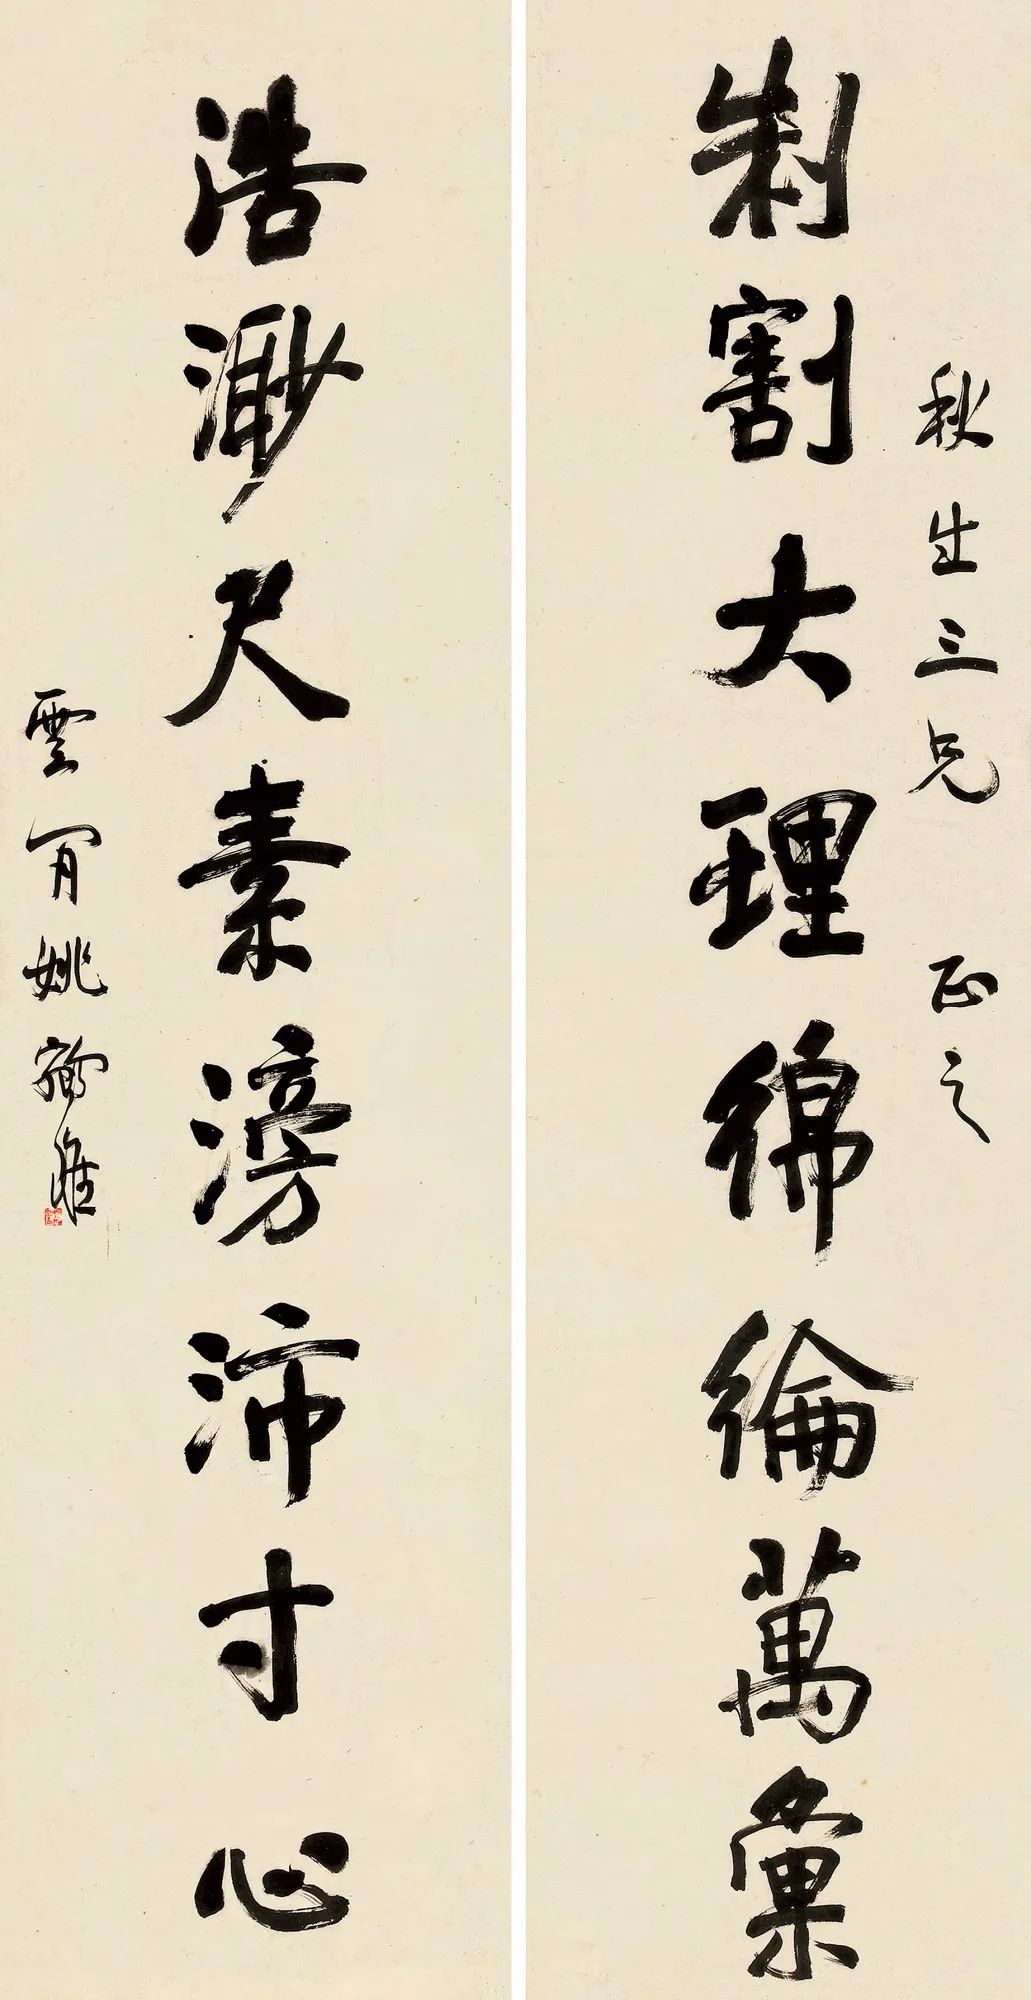 秋生三兄 正之
制割大理綿綸萬彙
浩渺尺素滂沛寸心
雲間姚鵷雛